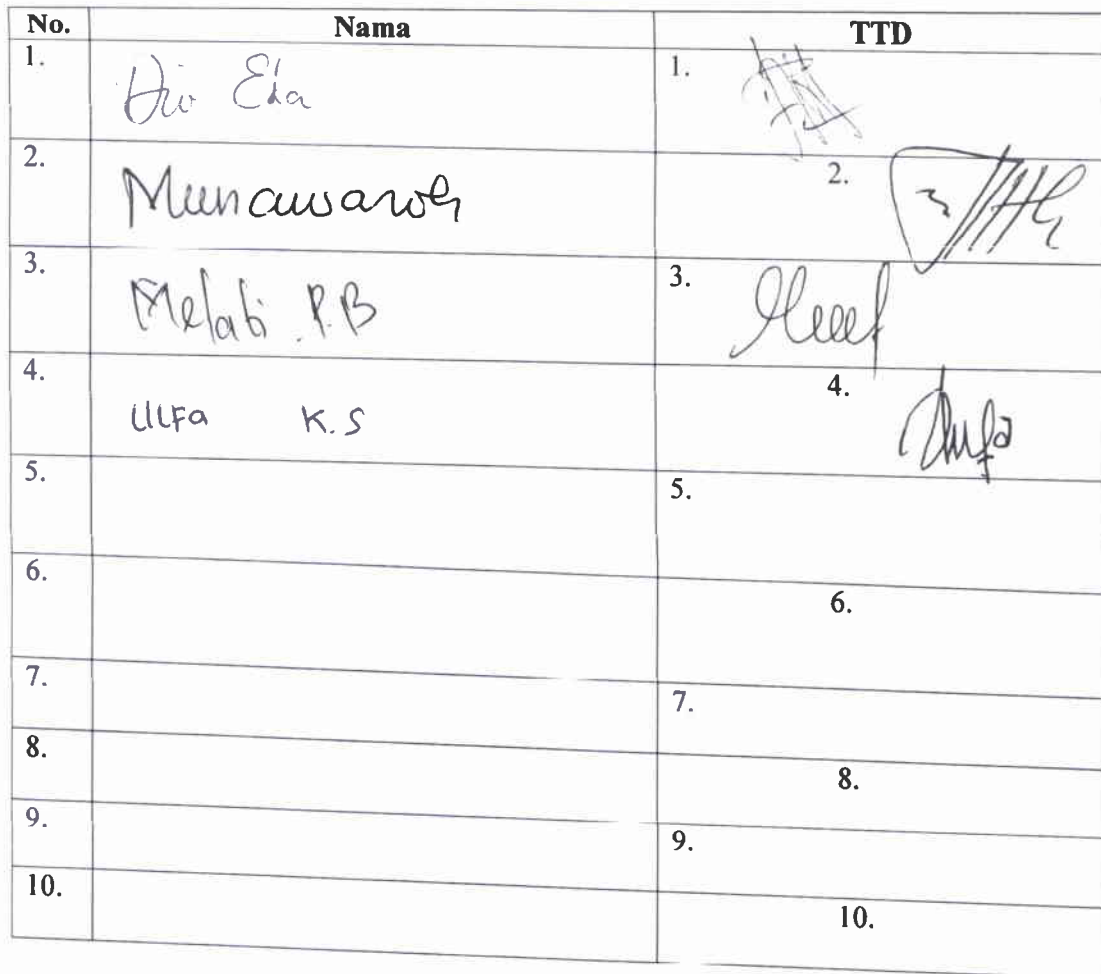 No. Nama TTD
1. Eka 1.
2. Munawaroh 2.
3. Melati P.B 3.
4. Ulfa K.S 4.
5. 5.
6. 6.
7. 7.
8. 8.
9. 9.
10. 10.